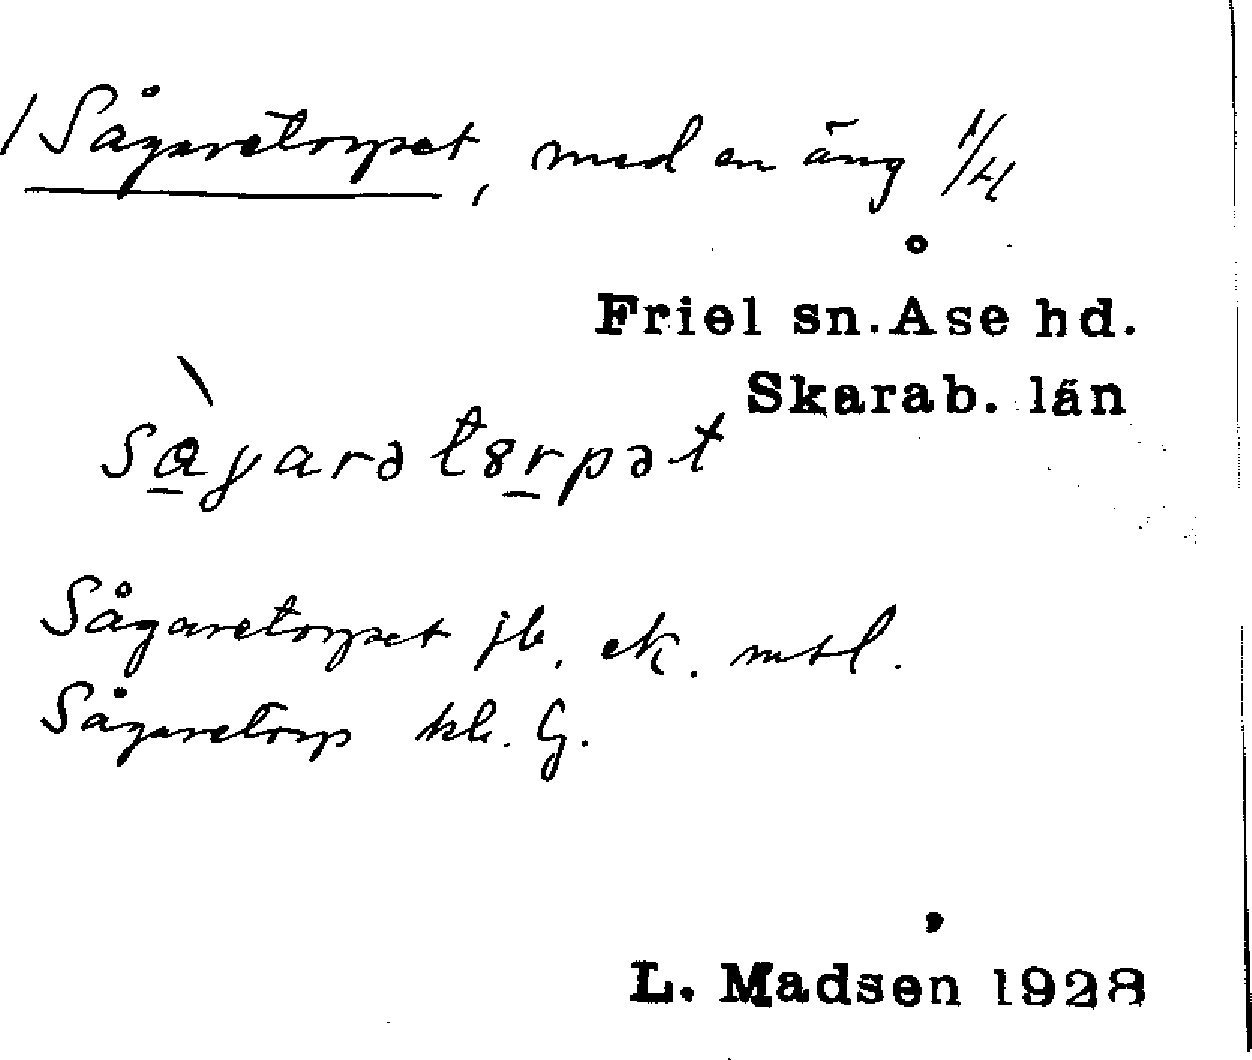 / Sågaretorpet, med en äng 1/4
Friel sn. Åse hd.
Skarab. län
sàgarətərpət
Sågaretorpet jb, ek. mtl.
Sågaretorp kb. G.
L. Madsen 1928